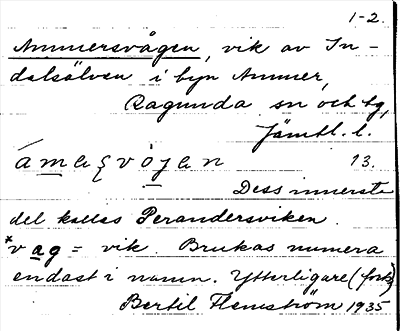 1-2.
Ammersvågen, vik av In-
dalsälven i byn Ammer,
Ragunda sn och tg,
Jämtl. l.
13.
Dess innersta
del kallas Perandersviken.
*vag = vik. Brukas numera
endast i namn. Ytterligare (forts)
Bertil Flemström 1935